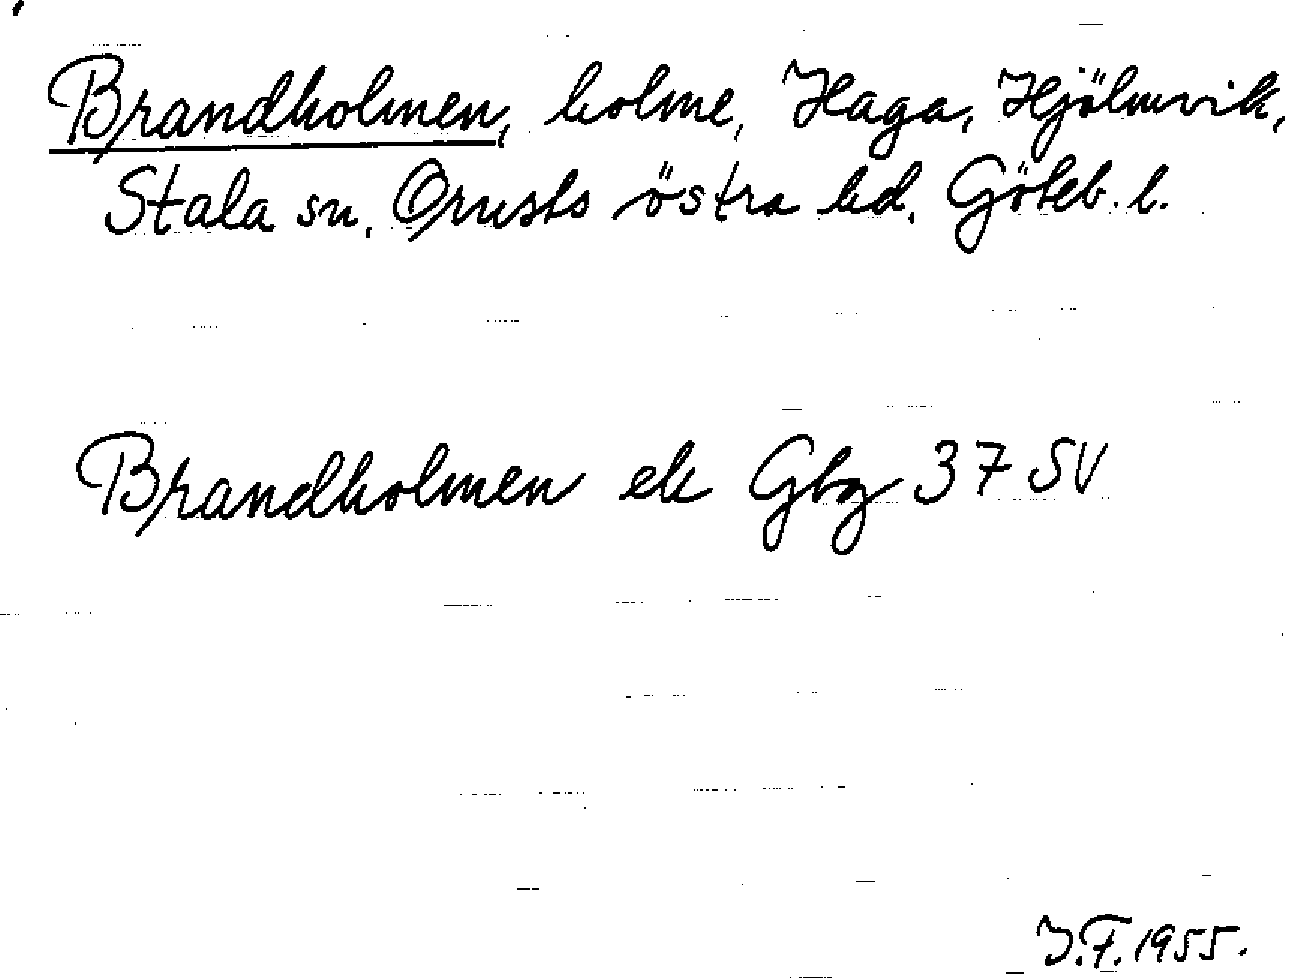 Brandholmen, holme, Haga, Hjälmvik,
Stala sn, Orusts östra hd, Göteb. l.
Brandholmen ek Gbg 37 SV
J.F. 1955.